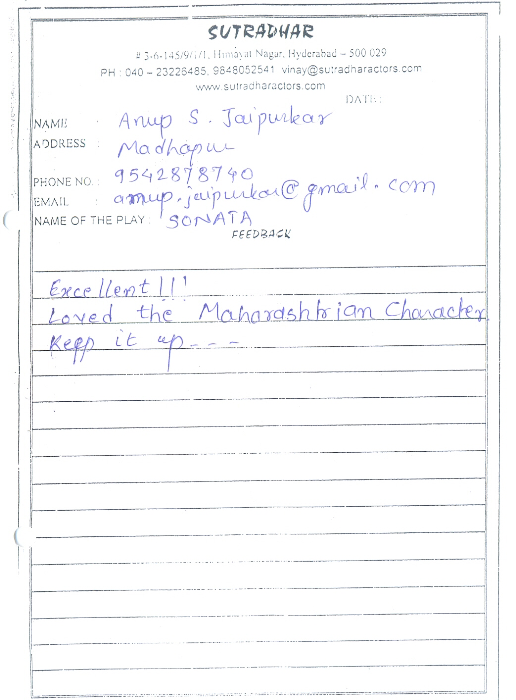 SUTRADHAR
# 3-6-145/9/1/1, Himayat Nagar, Hyderabad – 500 029
PH : 040 – 23226485, 9848052541 vinay@sutradharactors.com
www.sutradharactors.com
DATE:
NAME : Anup S. Jaipurkar
ADDRESS : Madhapur
PHONE NO. : 9542878740
EMAIL : anup.jaipurkar@gmail.com
NAME OF THE PLAY : SONATA
FEEDBACK
Excellent!!!
Loved the Maharashtrian Character
Keep it up---